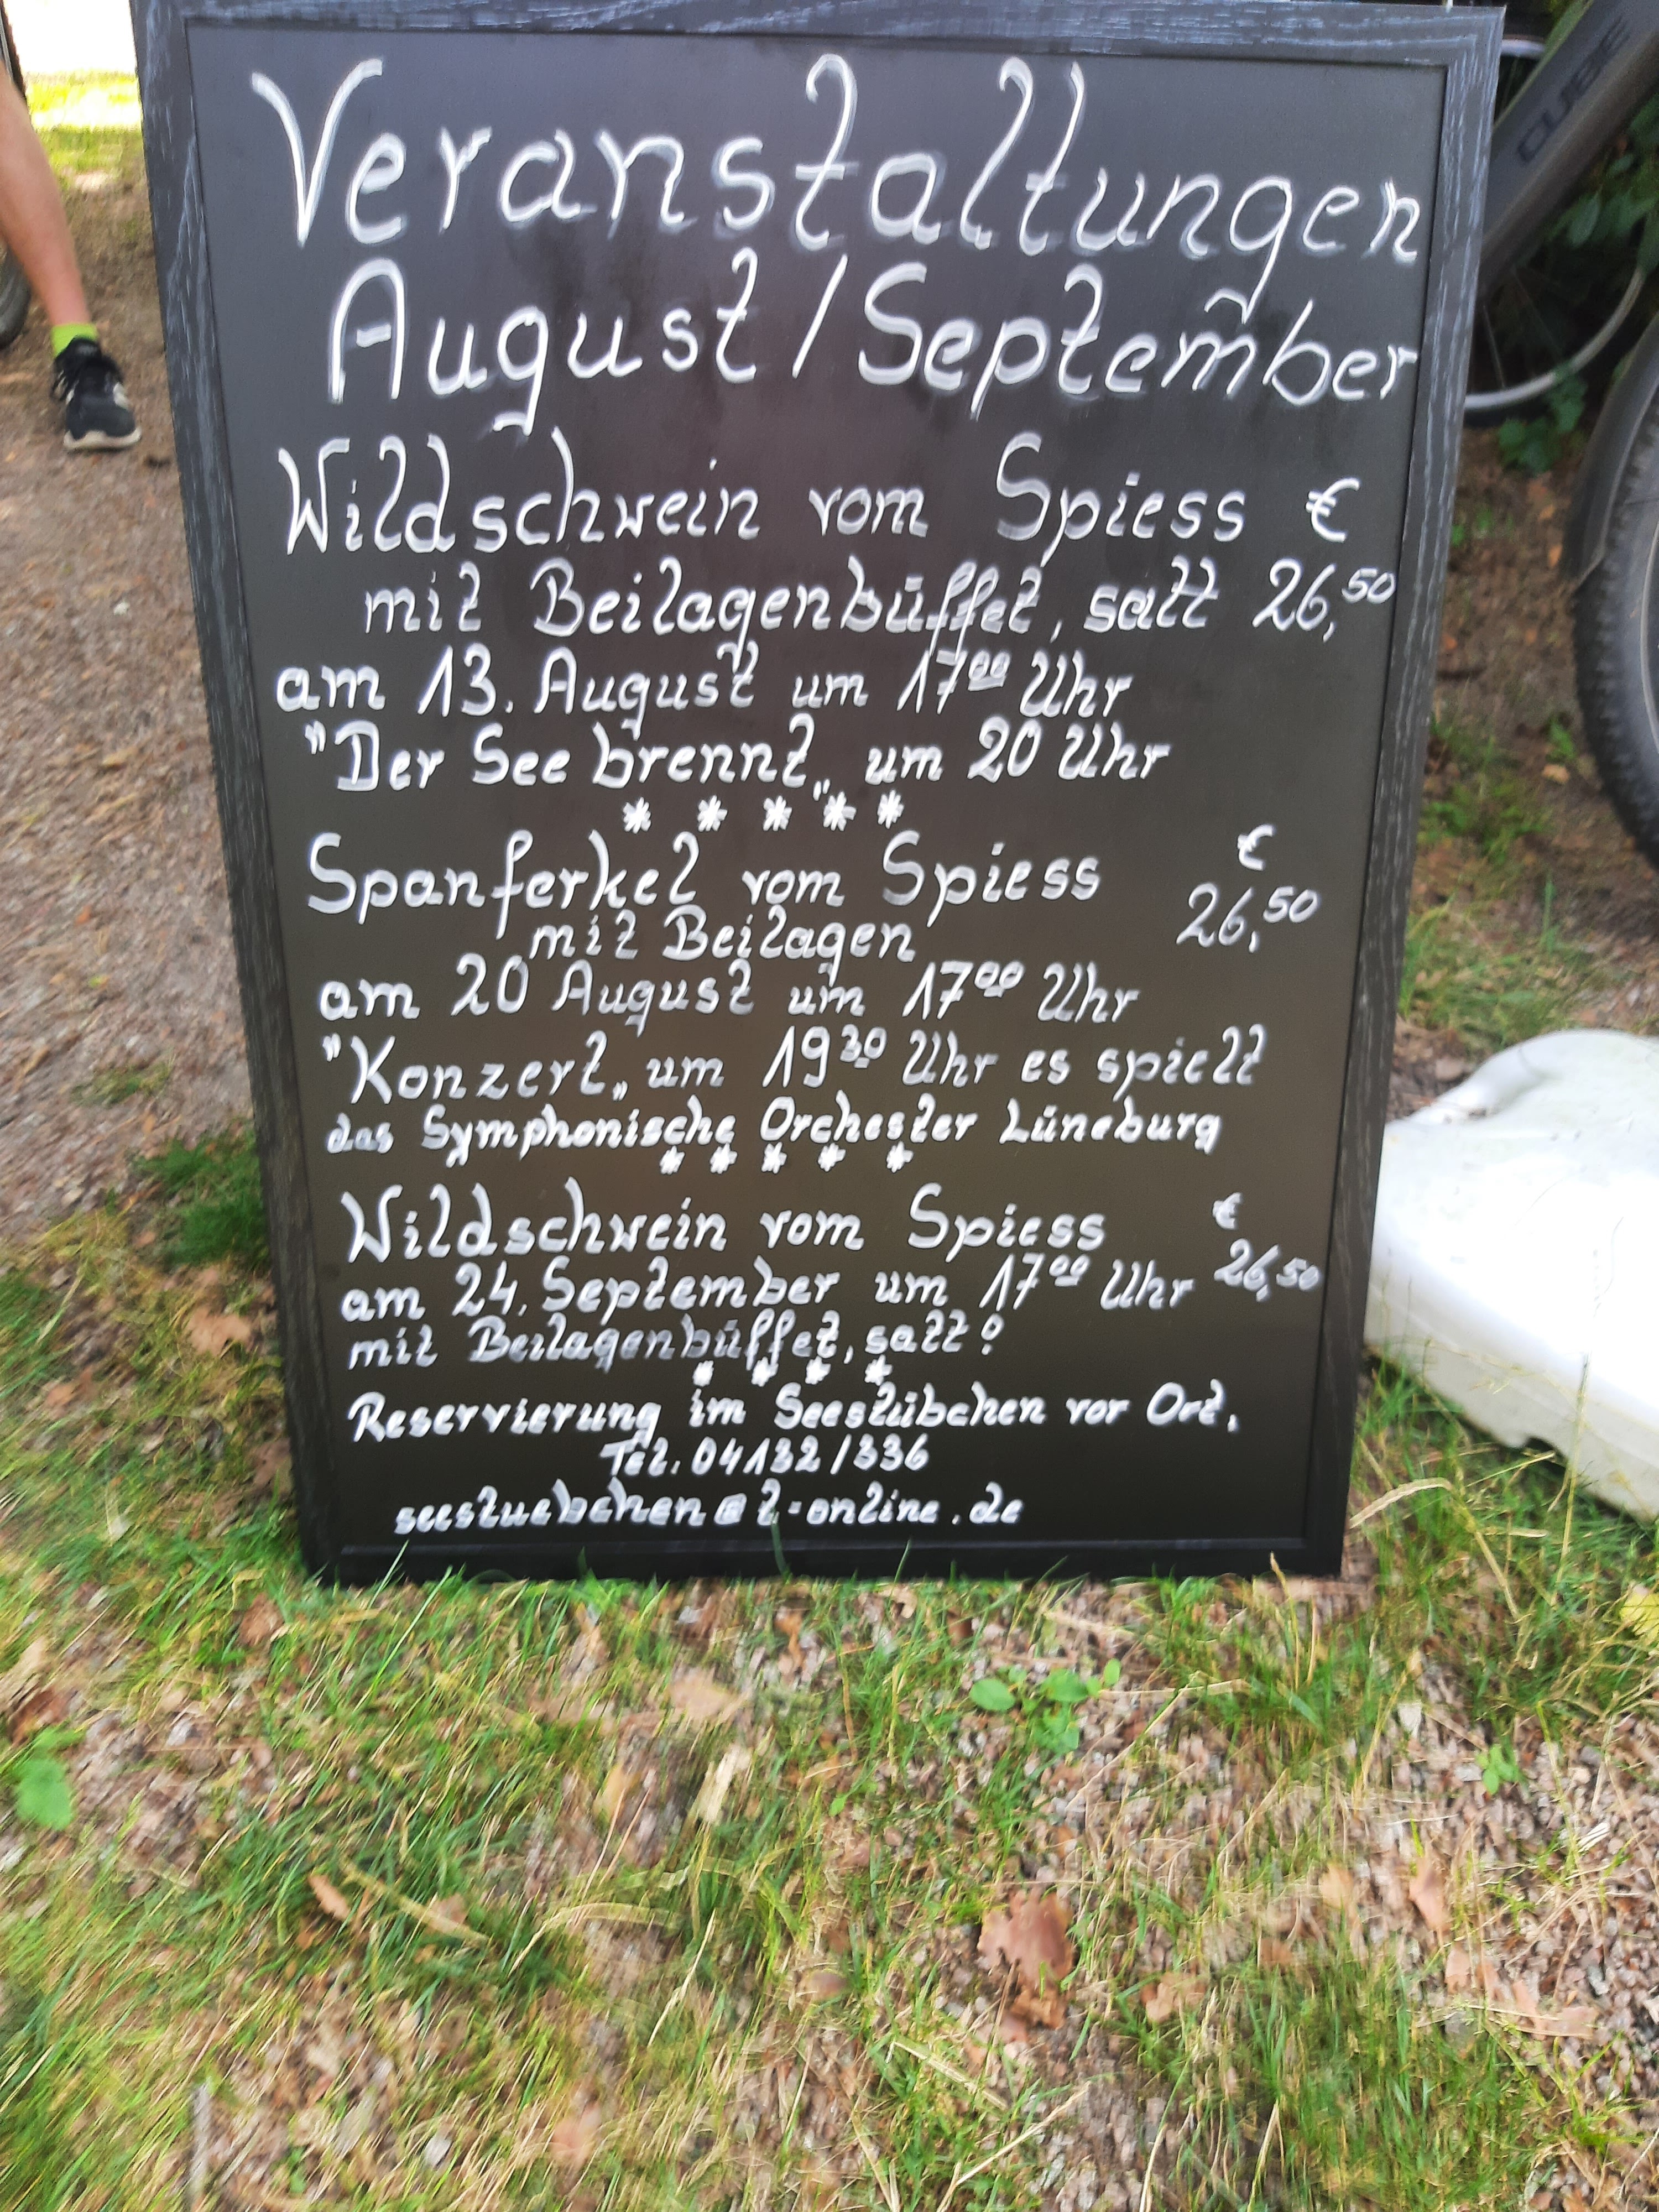 Veranstaltungen
August / September
Wildschwein vom Spiess €
mit Beilagenbüffet, satt 26,50
am 13. August um 1700 Uhr
"Der See brennt„ um 20 Uhr
* * * * *
Spanferkel vom Spiess €
mit Beilagen 26,50
am 20 August um 1700 Uhr
"Konzert„ um 1930 Uhr es spielt
das Symphonische Orchester Lüneburg
* * * * *
Wildschwein vom Spiess €
am 24. September um 1700 Uhr 26,50
mit Beilagenbüffet, satt!
* * * *
Reservierung im Seestübchen vor Ort,
Tel. 04132/336
seestuebchen@t-online.de
CUBE